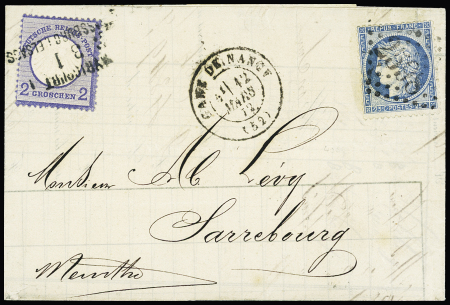 DEUTSCHE REICHS-POST
2 2
GROSCHEN
AVRICOURT
1
8
REPUB. FRANC.
25 POSTES 25
GARE DE NANCY
12
MARS
72
(52)
Monsieur M Lévy
Sarrebourg
Meurthe